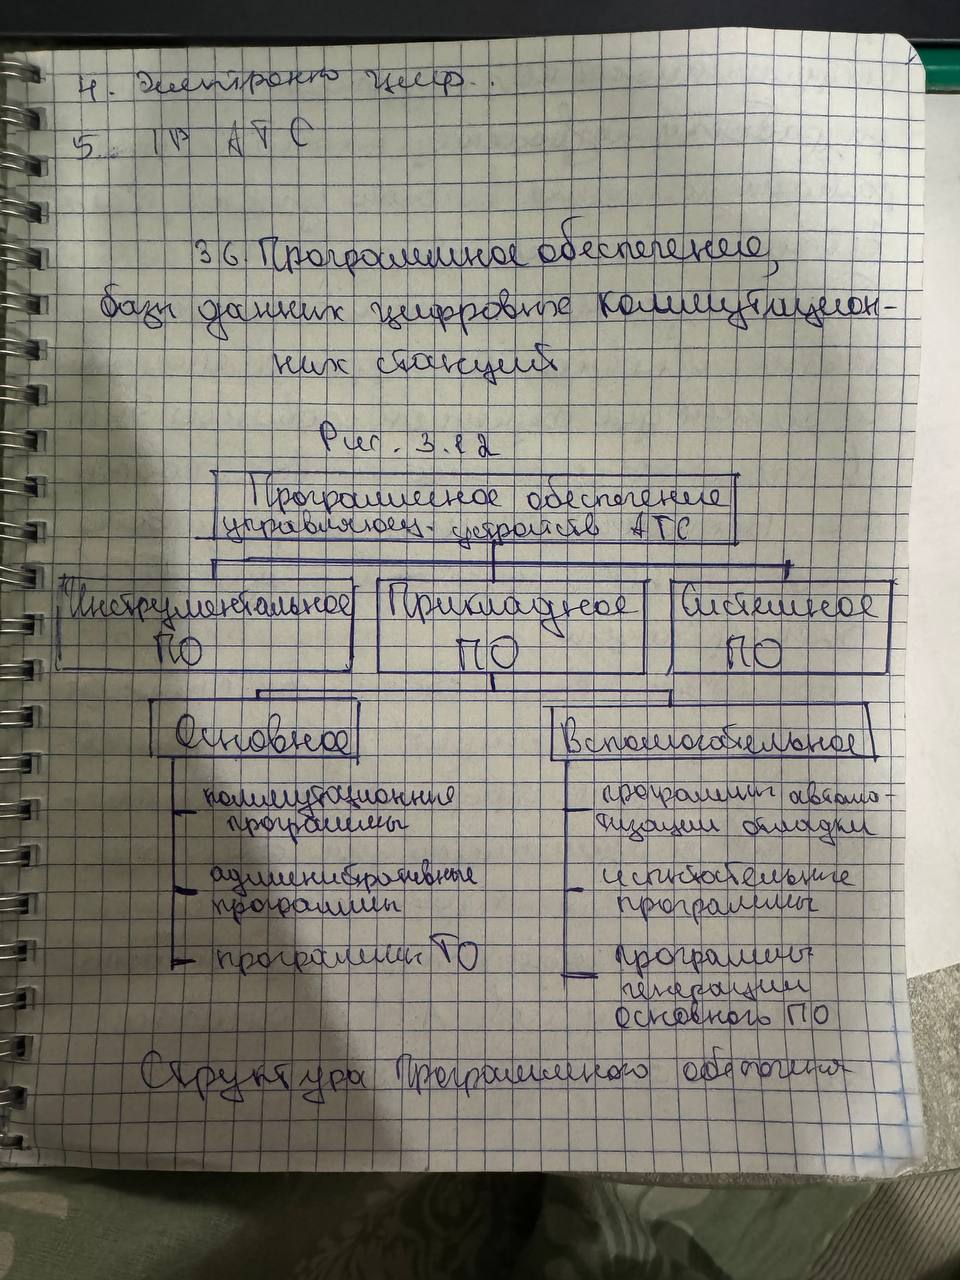 4. Электронно циф..
5. IP АТС
3 6. Программное обеспечение,
базы данных цифровые коммутацион-
ных станций
Рис. 3.12
Программное обеспечение
управляющ. устройств АТС
Инструментальное
ПО
Прикладное
ПО
Системное
ПО
Основное
Вспомогательное
коммутационные
программы
административные
программы
программы ТО
программы автома-
тизации отладки
испытательные
программы
программы
генерации
основного ПО
Структура Программного